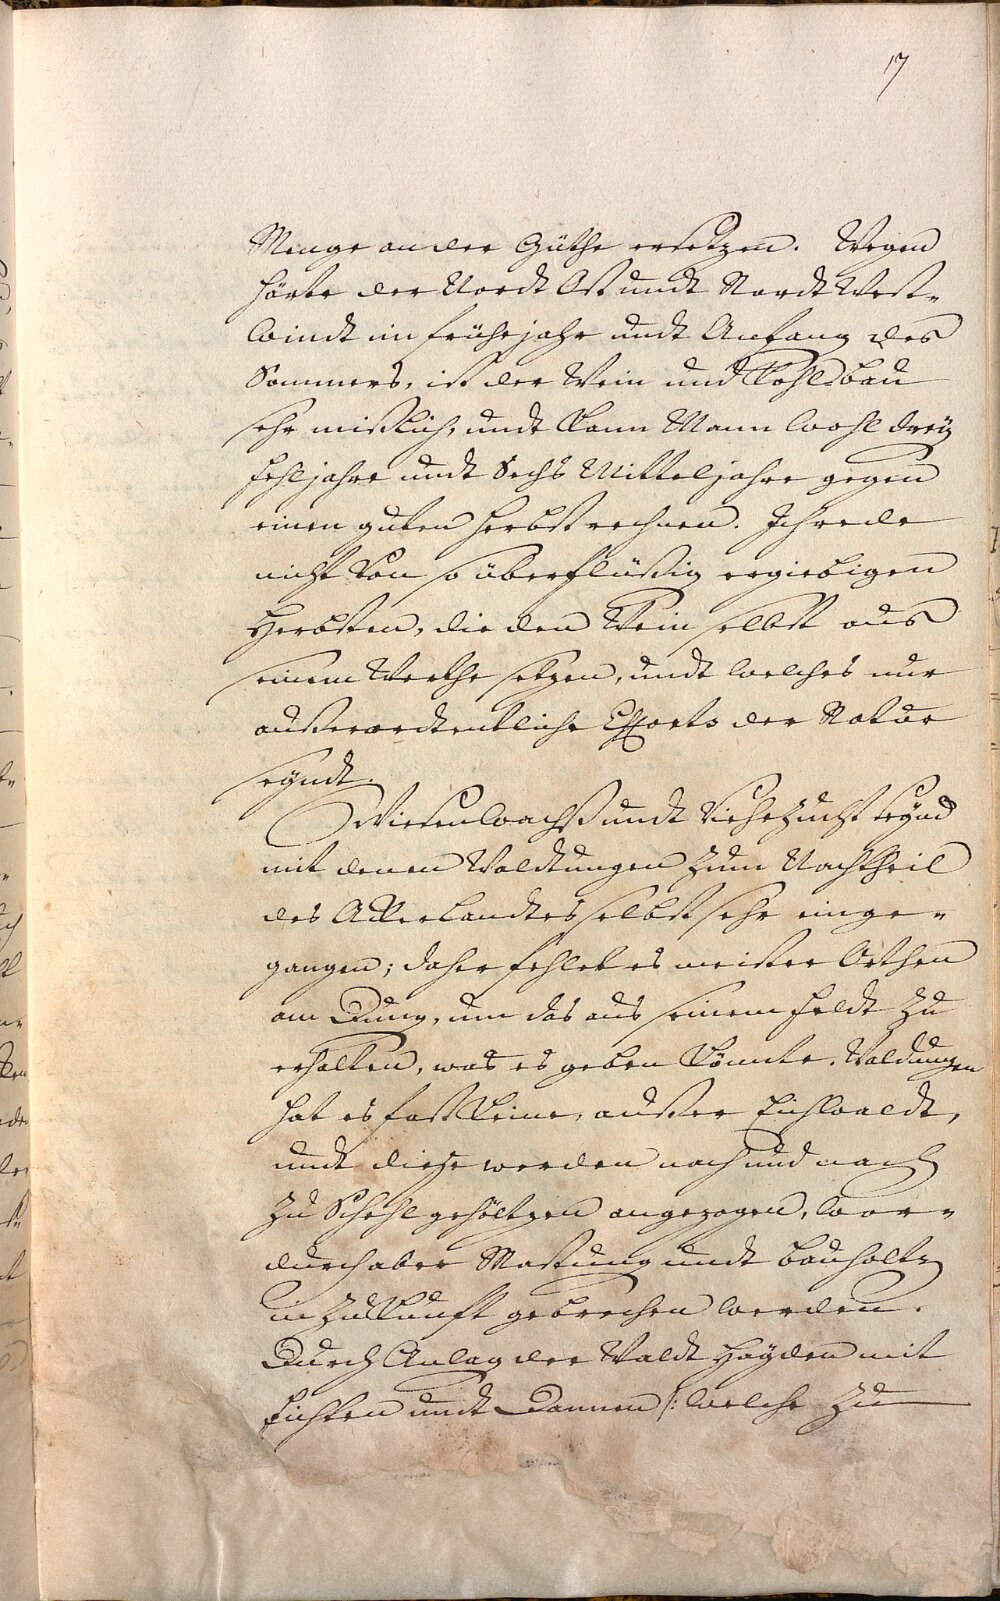 17
Menge an der Güthe ersetzen. Wegen
härte der Nordt Ost undt Nordt West-
windt im frühejahr undt Anfang des
Sommers, ist der Wein und Kohlsbau
sehr mißlich, undt kann Mann wohl dreÿ
fehljahre undt Sechs Mitteljahre gegen
einen guten herbst rechnen. Ich rede
nicht von so überflüßig ergiebigen
Herbsten, die den Wein selbst aus
seinem Werthe setzen, undt welches nur
außerordtentliche Efforts der Natur
seyndt.
Wiesenwachß undt Viehezucht seynd
mit denen Waldtungen zum Nachtheil
des Ackerlandtes selbst sehr einge-
gangen; daher fehlet es meister Orthen
am Dung, um das aus seinem feldt zu
erhalten, was es geben könnte. Waldungen
hat es fast keine, außer Eichwaldt,
undt diese werden nach und nach
zu Schehlgehöltzen angezogen, wor-
durch aber Mastung undt bauholtz
in Zukunft gebrechen werden.
Durch Anlag der Waldt Hayden mit
fichten undt Dannen /: welche zu